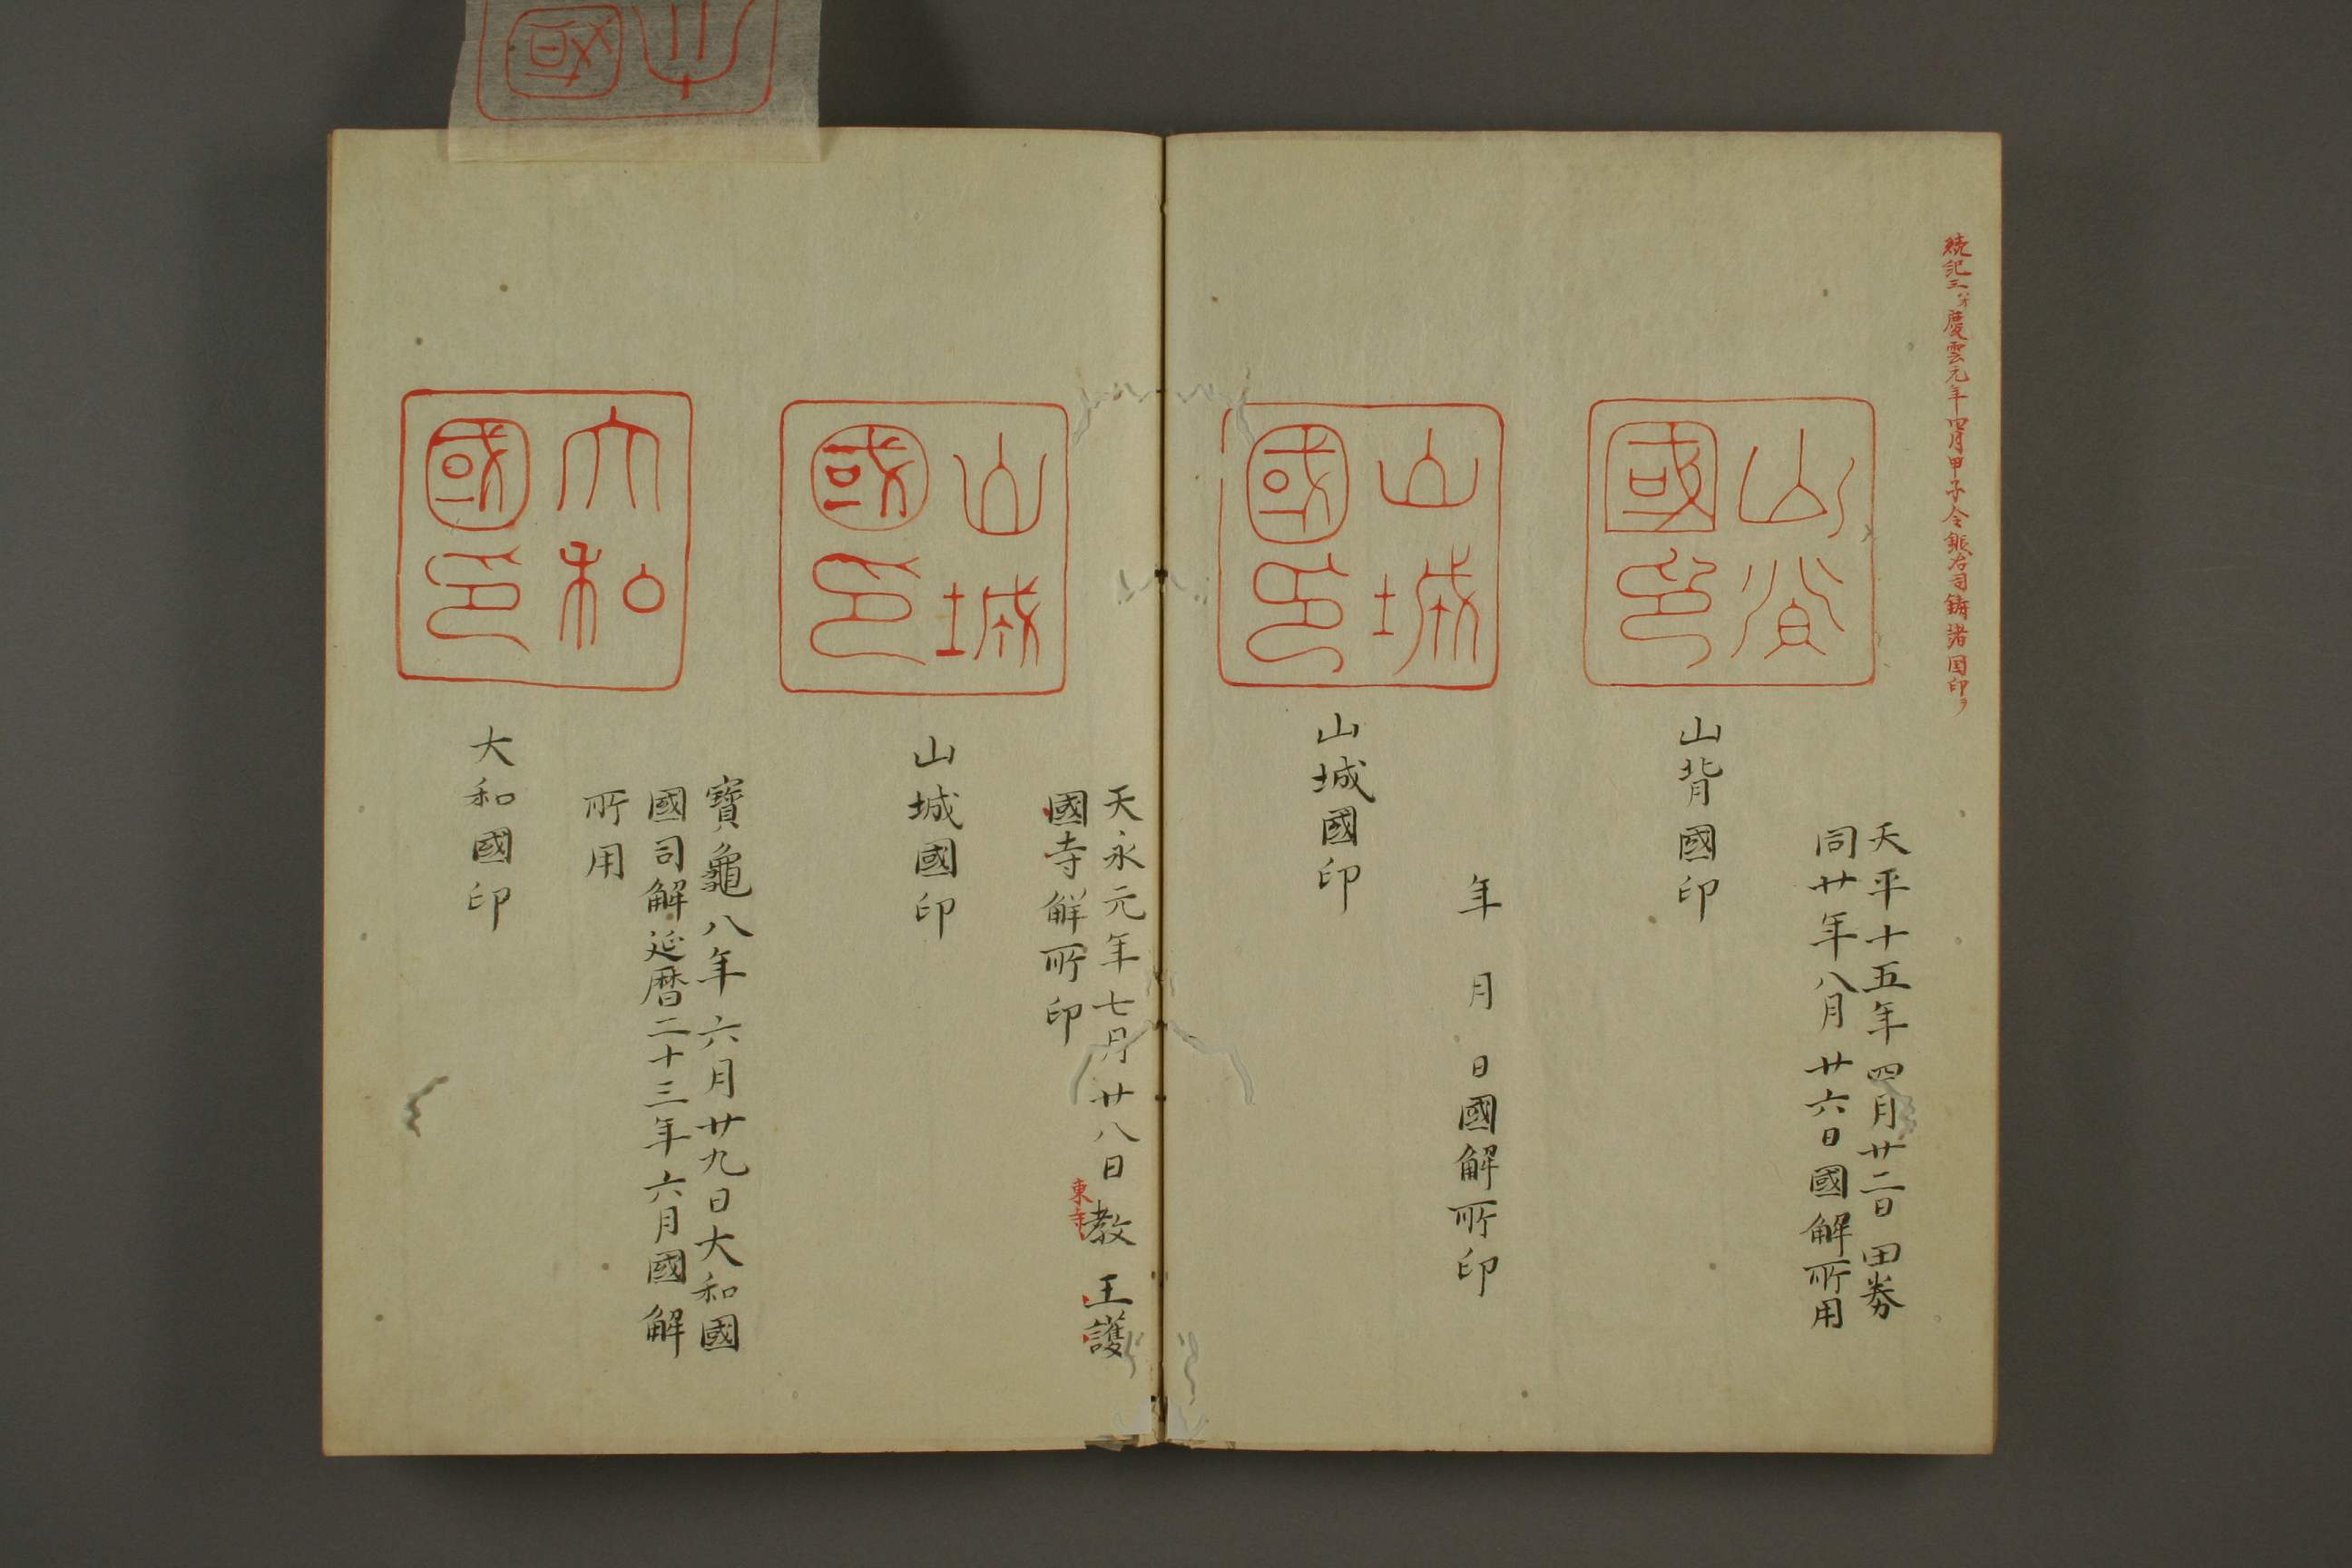 続記三
慶雲元年四月甲子令鍛冶司鋳諸国印
山背
國印
天平十五年四月廿二日田券
同廿年八月廿六日國解所用
山背國印
山城
國印
年 月 日國解所印
山城國印
山城
國印
天永元年七月廿八日教王護
東寺
國寺解所印
山城國印
大和
國印
寶龜八年六月廿九日大和國
國司解延暦二十三年六月國解
所用
大和國印
國